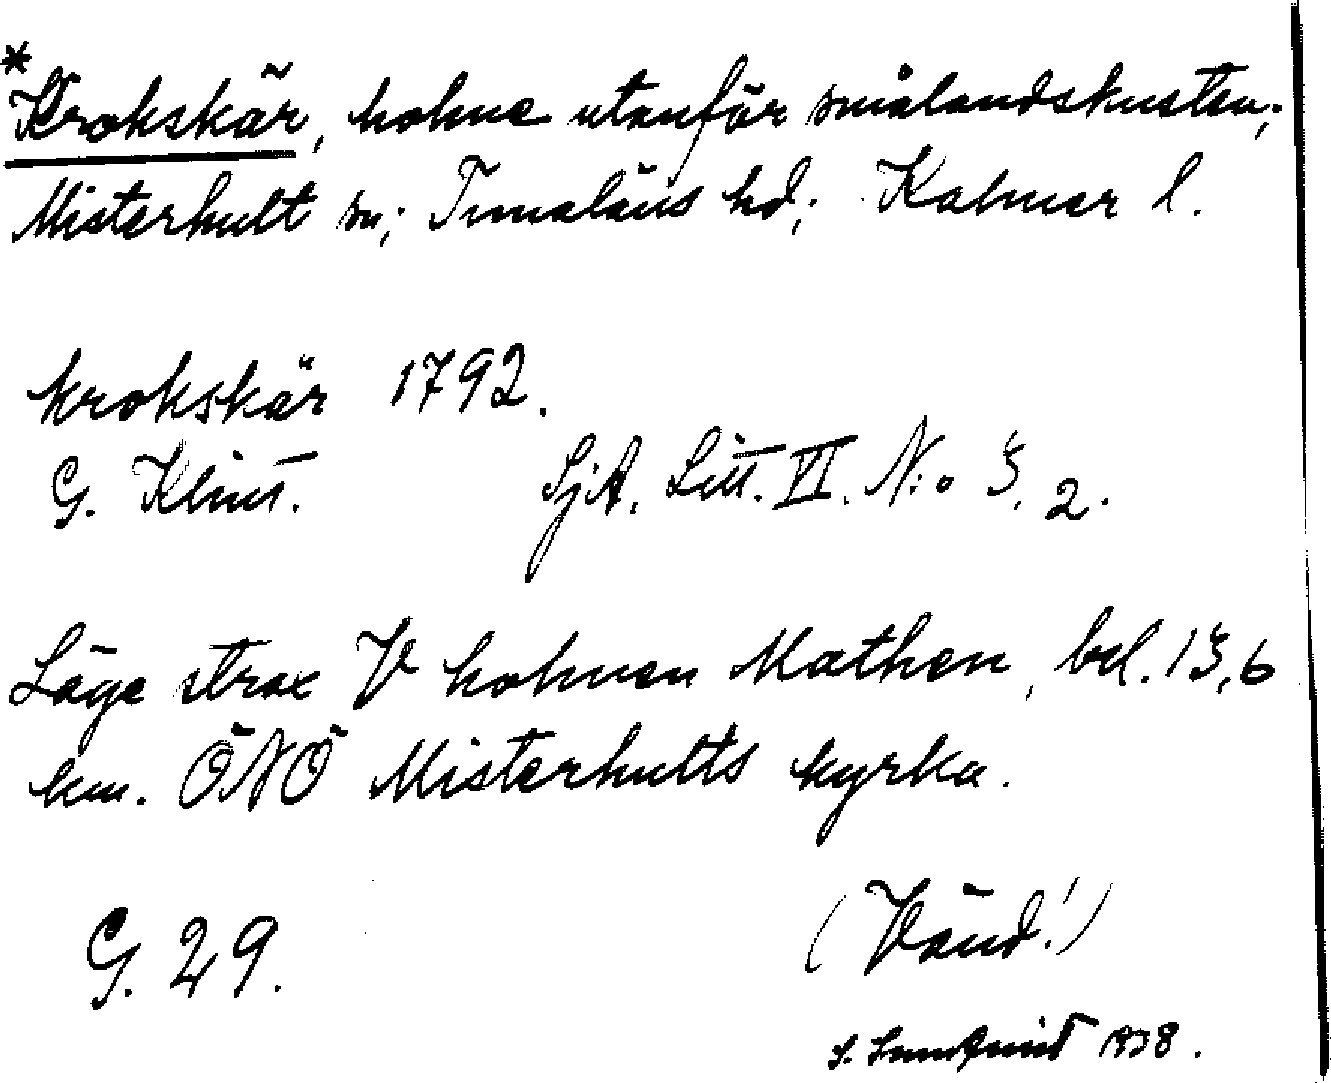 *Krokskär, holme utanför smålandskusten;
Misterhult sn; Tunaläns hd; Kalmar l.
krokskär 1792.
G. Klint. SjA. Litt. VI. N:o 5. 2.
Läge strax V holmen Mathen, bel. 15,6
km. ÖNÖ Misterhults kyrka.
G. 29.
(Vänd!)
S. 1938.